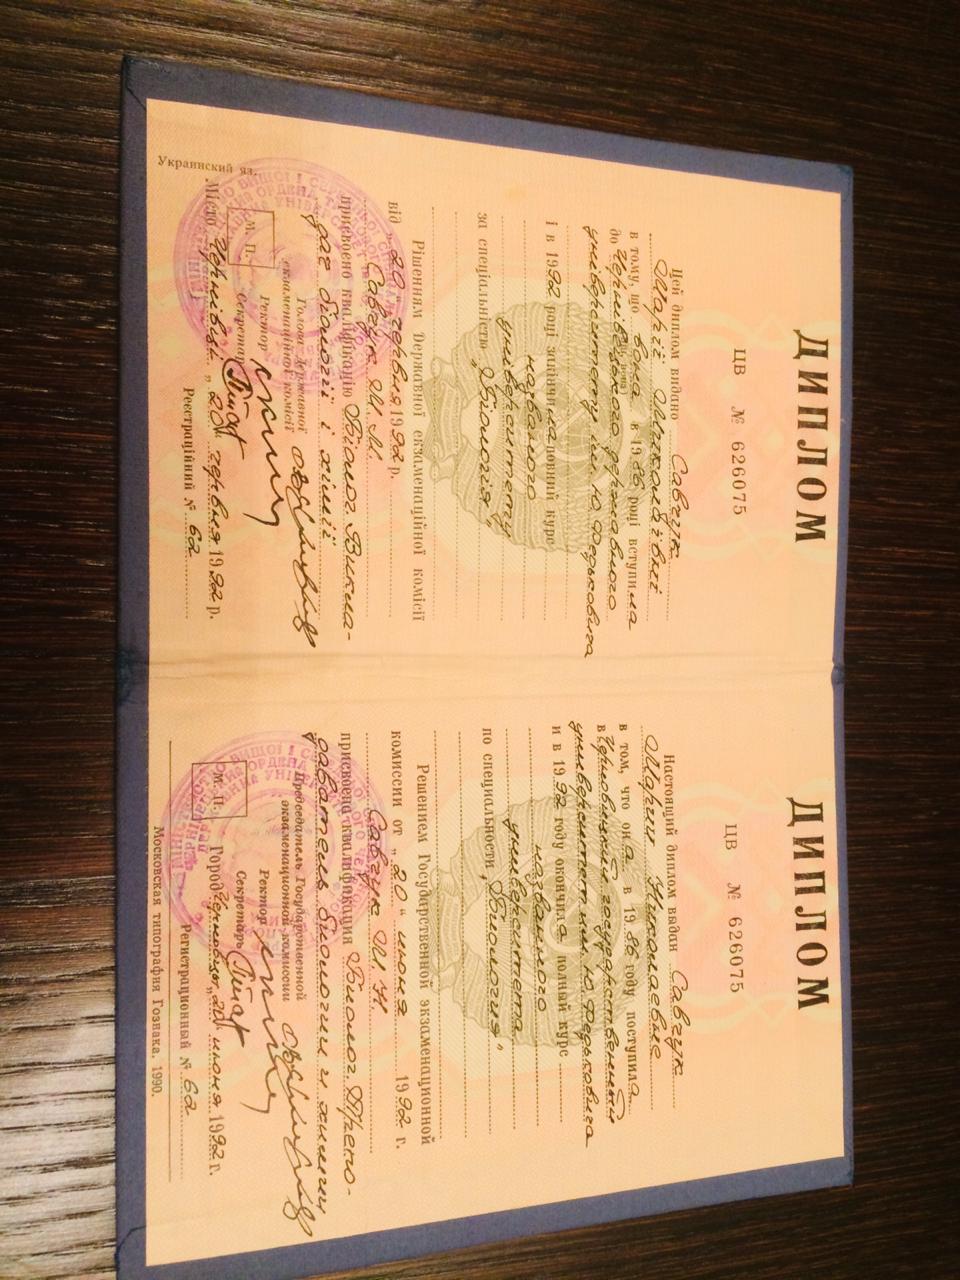 ДИПЛОМ
ЦВ № 626075
Цей диплом видано Савчук
Марії Миколаївні
в тому, що вона в 1986 році вступила
до Чернівецького державного
університету ім. Ю. Федьковича
і в 1992 році закінчила повний курс
названого
університету
за спеціальністю „Біологія“
Рішенням Державної екзаменаційної комісії
від „20“ червня 1992 р.
Савчук М. М.
присвоєно кваліфікацію Біолог. Викла-
дач біології і хімії
Голова Державної
екзаменаційної комісії
Ректор
Секретар
М. П.
Місто Чернівці „20“ червня 1992 р.
Реєстраційний № 62
Украинский яз.
ДИПЛОМ
ЦВ № 626075
Настоящий диплом выдан Савчук
Марии Николаевне
в том, что она в 1986 году поступила
в Черновицкий государственный
университет им. Ю. Федьковича
и в 1992 году окончила полный курс
названного
университета
по специальности „Биология“
Решением Государственной экзаменационной
комиссии от „20“ июня 1992 г.
Савчук М. Н.
присвоена квалификация Биолог. Препо-
даватель биологии и химии
Председатель Государственной
экзаменационной комиссии
Ректор
Секретарь
М. П.
Город Черновцы „20“ июня 1992 г.
Регистрационный № 62
Московская типография Гознака. 1990.